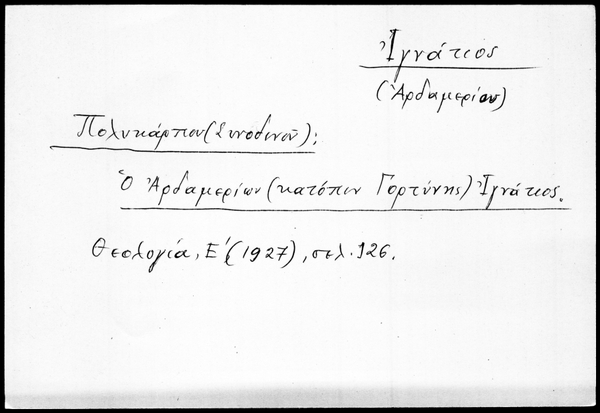 Ἰγνάτιος
(Ἀρδαμερίου)
Πολυκάρπου (Συνοδινοῦ):
Ὁ Ἀρδαμερίων (κατόπιν Γορτύνης) Ἰγνάτιος.
Θεολογία, Ε΄ (1927), σελ. 126.